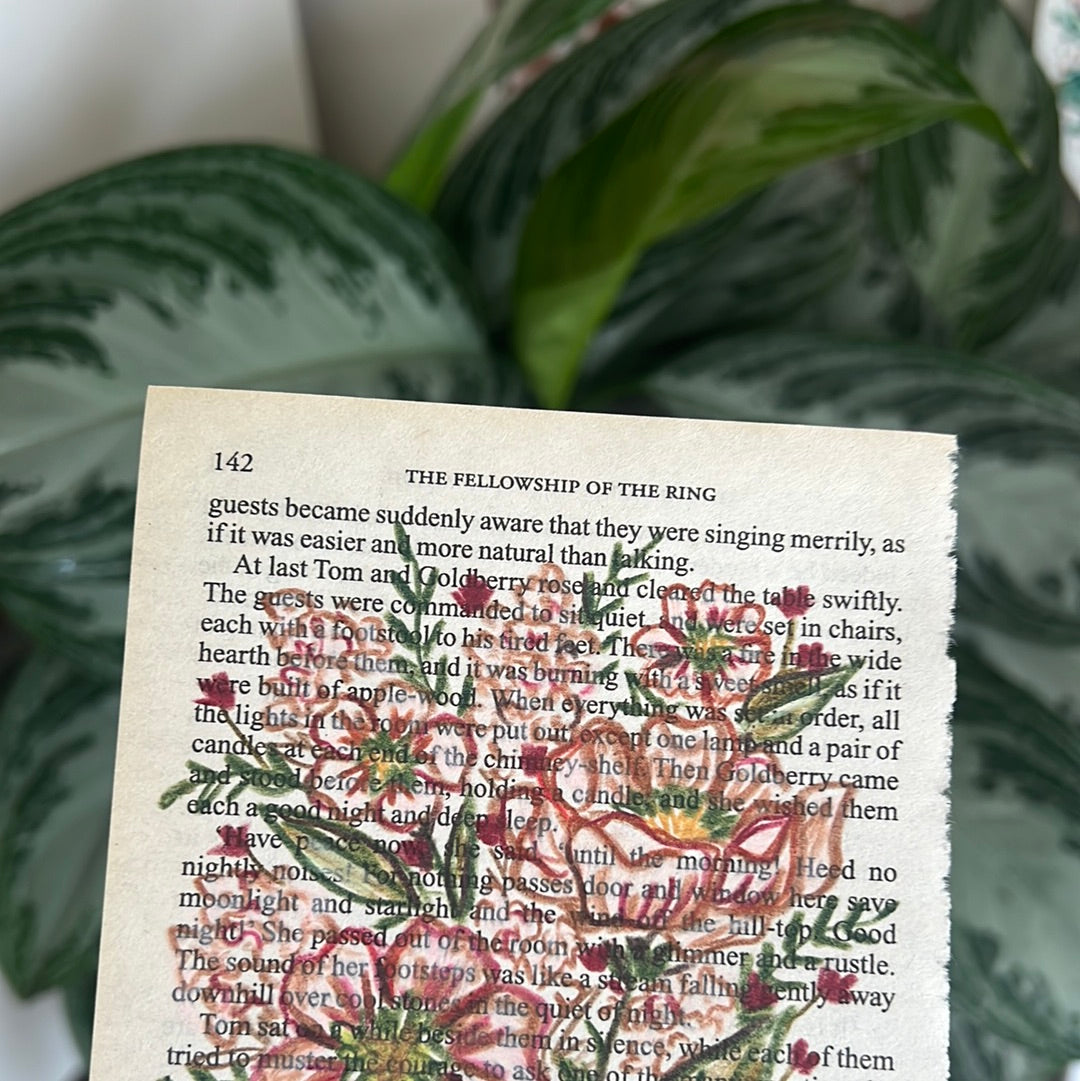 142
THE FELLOWSHIP OF THE RING
guests became suddenly aware that they were singing merrily, as
if it was easier and more natural than talking.
At last Tom and Goldberry rose and cleared the table swiftly.
The guests were commanded to sit quiet, and were set in chairs,
each with a footstool to his tired feet. There was a fire in the wide
hearth before them, and it was burning with a sweet smell, as if it
were built of apple-wood. When everything was set in order, all
the lights in the room were put out, except one lamp and a pair of
candles at each end of the chimney-shelf. Then Goldberry came
and stood before them, holding a candle; and she wished them
each a good night and deep sleep.
‘Have peace now,’ she said, ‘until the morning! Heed no
nightly noises! For nothing passes door and window here save
moonlight and starlight and the wind off the hill-top. Good
night!’ She passed out of the room with a glimmer and a rustle.
The sound of her footsteps was like a stream falling gently away
downhill over cool stones in the quiet of night.
Tom sat on a while beside them in silence, while each of them
tried to muster the courage to ask one of the many